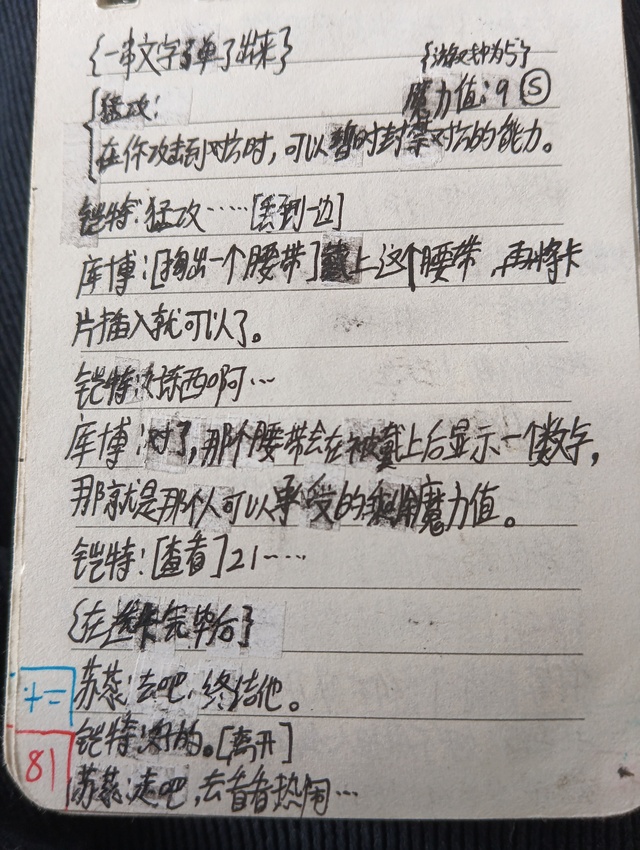 {一串文字弹了出来}
{游戏钟为5}
猛攻: 魔力值:9 Ⓢ
在你攻击到对方时,可以暂时封禁对方的能力。
铠特:猛攻……[丢到一边]
库博:[掏出一个腰带]戴上这个腰带,再将卡
片插入就可以了。
铠特:好东西啊…
库博:对了,那个腰带会在被戴上后显示一个数字,
那就是那个人可以承受的 魔力值。
铠特:[查看]21……
{在选卡完毕后}
苏菾:去吧,终结他。
铠特:好的。[离开]
苏菾:走吧,去看看热闹…
十二
81